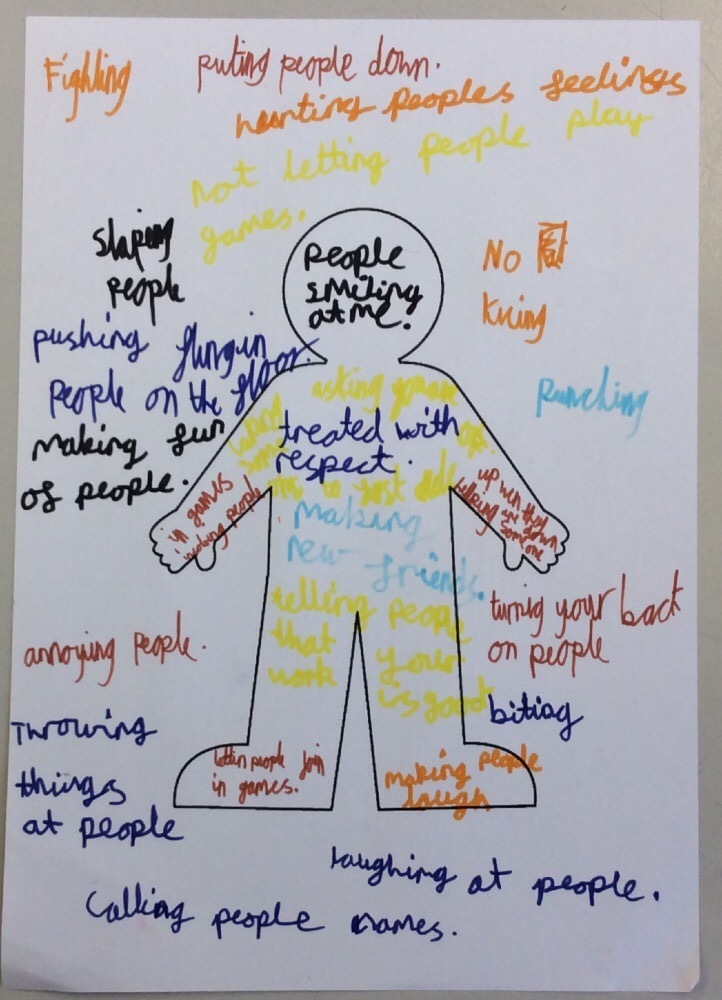 Fighting
puting people down.
hurting peoples feelings
not letting people play
games.
slaping
people
people
smiling
at me.
No
pushing
people on the floor.
making fun
of people.
punching
asking
treated with
respect.
making
new friends.
in games
people
up wen they
down
someone
telling people
that your
work is good
annoying people.
turning your back
on people
biting
Throwing
things
at people
people join
in games.
making people
laugh
laughing at people.
Calling people names.